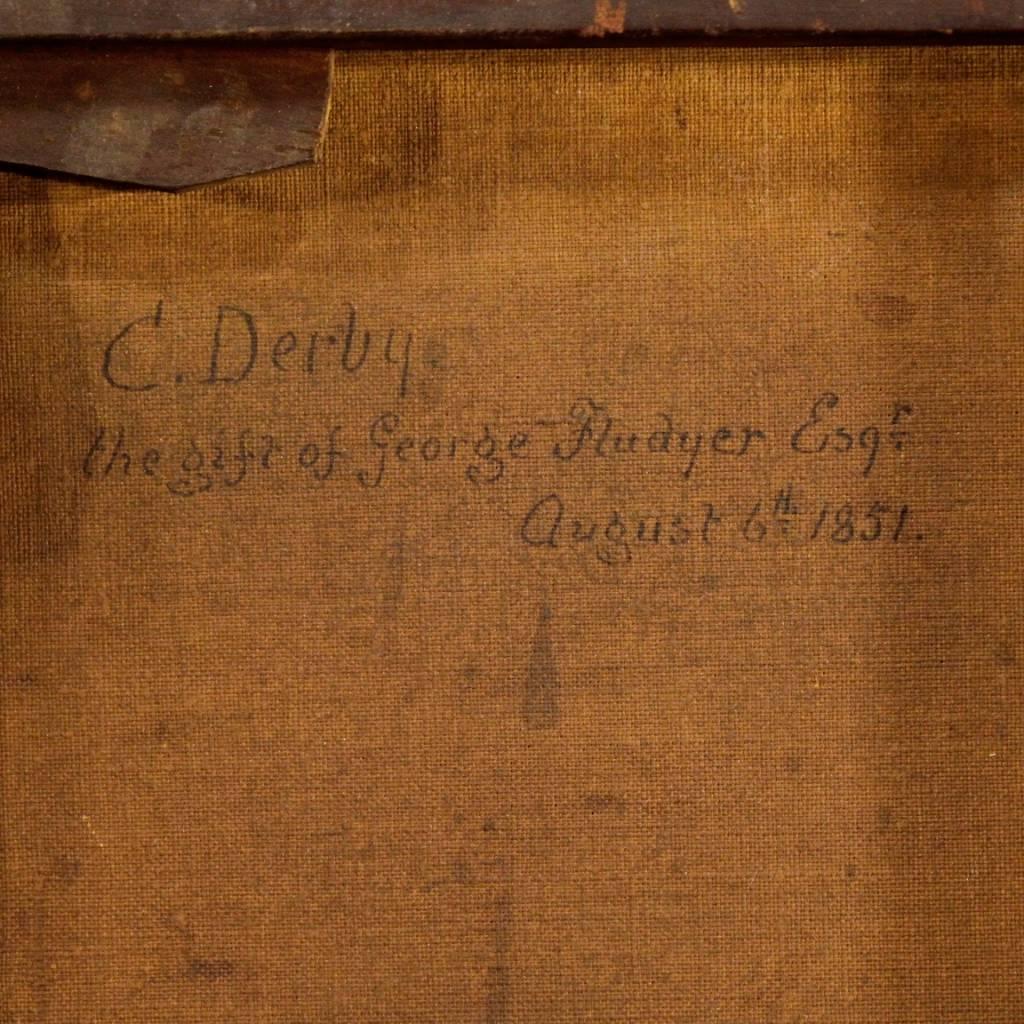 C. Derby.
the gift of George Fludyer Esqr
August 6th 1851.